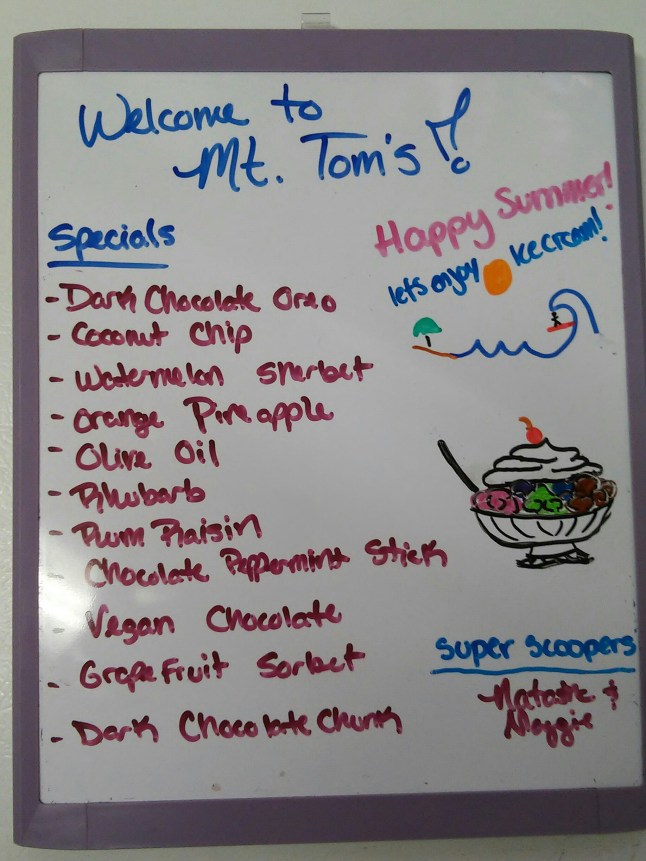 Welcome to
Mt. Tom's!
Happy Summer!
lets enjoy Ice cream!
Specials
- Dark Chocolate Oreo
- Coconut Chip
- Watermelon Sherbet
- Orange Pineapple
- Olive Oil
- Rhubarb
- Rum Raisin
- Chocolate Peppermint Stick
- Vegan Chocolate
- Grapefruit Sorbet
- Dark Chocolate Chunk
Super Scoopers
Natasha &
Maggie